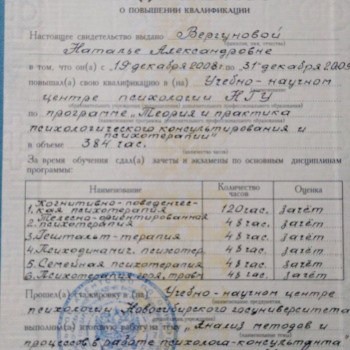 О ПОВЫШЕНИИ КВАЛИФИКАЦИИ
Настоящее свидетельство выдано Вергуновой
Наталье Александровне
в том, что он(а) с „19 декабря 2008г по 31 декабря 2009
повышал(а) свою квалификацию в (на) Учебно-научном
центре психологии НГУ
по программе „Теория и практика
психологического консультирования и
психотерапии"
в объеме 384 час.
За время обучения сдал(а) зачеты и экзамены по основным дисциплинам
программы:
Наименование Количество часов Оценка
1. Когнитивно-поведенчес-
кая психотерапия 120час. зачёт
2. Телесно-ориентированная
психотерапия 48час. зачёт
3. Гештальт-терапия 48час. зачёт
4. Психодинамич. психотер. 48час. зачёт
5. Семейная психотерапия 48час. зачёт
6. Психотерапия 48час. зачёт
Прошел(а) стажировку в (на) Учебно-научном центре
психологии Новосибирского госуниверситета
выполнил(а) на тему „Анализ методов и
процессов в работе психолога-консультанта